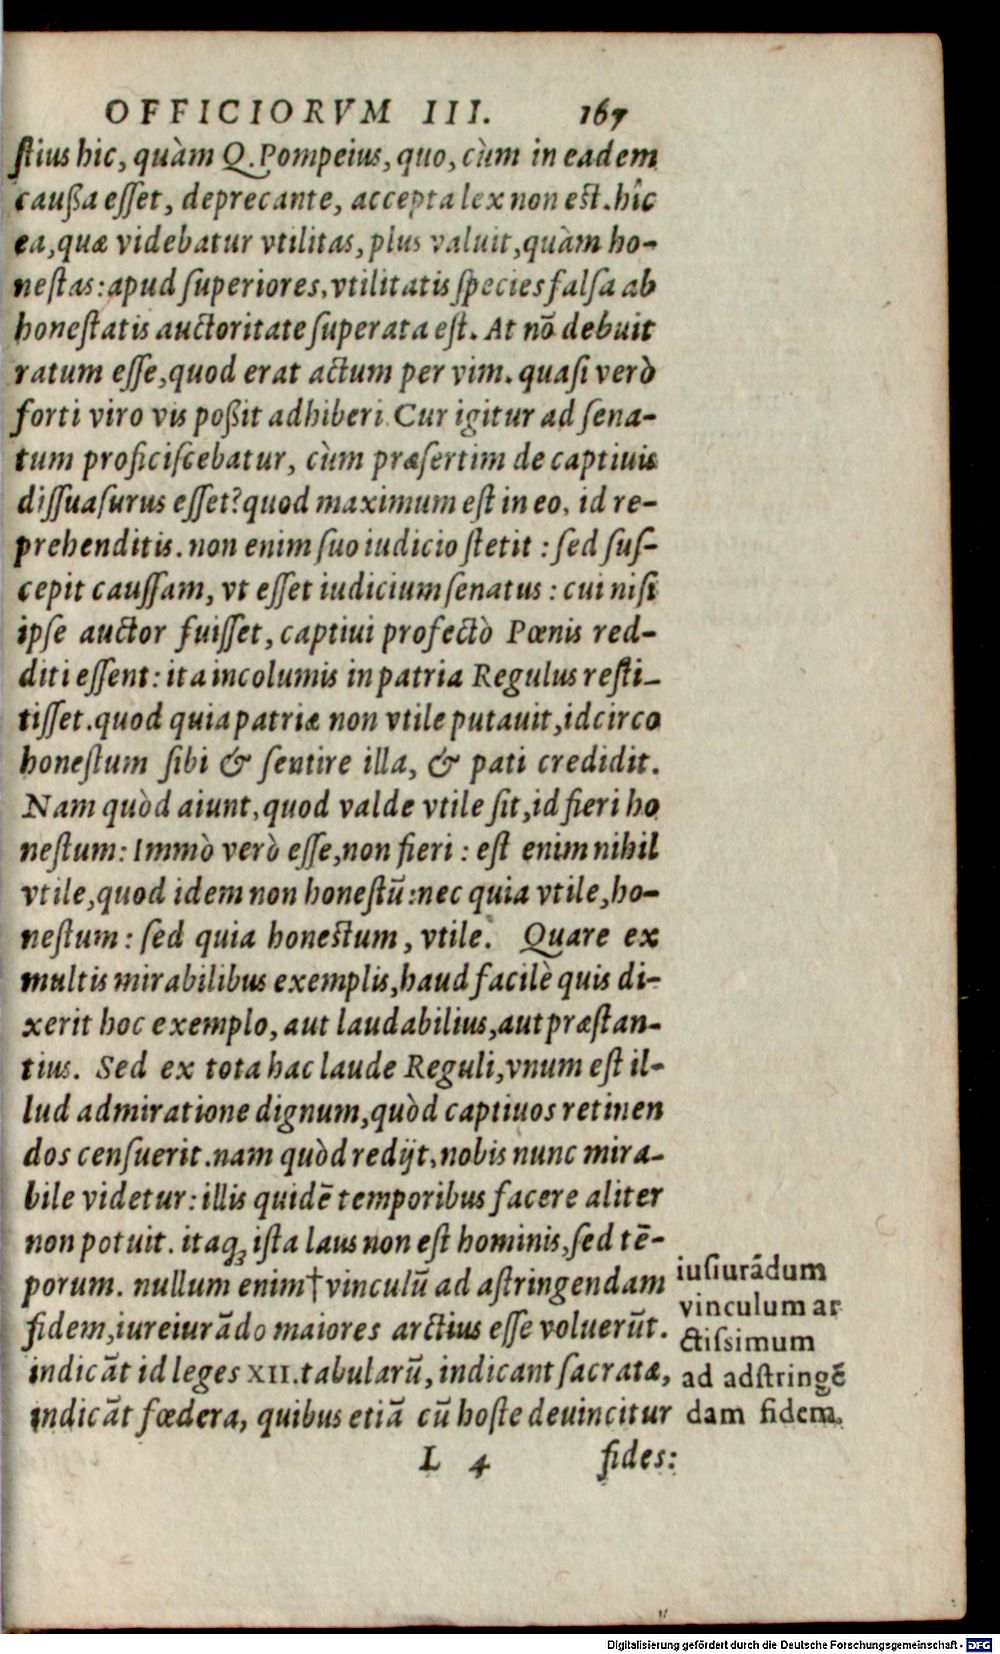 OFFICIORVM III. 167
stius hic, quàm Q. Pompeius, quo, cùm in eadem
caußa esset, deprecante, accepta lex non est. hîc
ea, quæ videbatur vtilitas, plus valuit, quàm ho-
nestas: apud superiores, vtilitatis species falsa ab
honestatis auctoritate superata est. At nō debuit
ratum esse, quod erat actum per vim. quasi verò
forti viro vis poßit adhiberi. Cur igitur ad sena-
tum proficiscebatur, cùm præsertim de captiuis
dissuasurus esset? quod maximum est in eo, id re-
prehenditis. non enim suo iudicio stetit: sed sus-
cepit caussam, vt esset iudicium senatus: cui nisi
ipse auctor fuisset, captiui profectò Pœnis red-
diti essent: ita incolumis in patria Regulus resti-
tisset. quod quia patriæ non vtile putauit, idcirco
honestum sibi & sentire illa, & pati credidit.
Nam quòd aiunt, quod valde vtile sit, id fieri ho
nestum: Immò verò esse, non fieri: est enim nihil
vtile, quod idem non honestū: nec quia vtile, ho-
nestum: sed quia honestum, vtile. Quare ex
multis mirabilibus exemplis, haud facilè quis di-
xerit hoc exemplo, aut laudabilius, aut præstan-
tius. Sed ex tota hac laude Reguli, vnum est il-
lud admiratione dignum, quòd captiuos retinen
dos censuerit. nam quòd redijt, nobis nunc mira-
bile videtur: illis quidē temporibus facere aliter
non potuit. itaqꝫ ista laus non est hominis, sed tē-
porum. nullum enim † vinculū ad astringendam
fidem, iureiurādo maiores arctius esse voluerūt.
indicāt id leges XII. tabularū, indicant sacratæ,
indicāt fœdera, quibus etiā cū hoste deuincitur
iusiurādum
vinculum ar
ctissimum
ad adstringē
dam fidem.
L 4 fides:
Digitalisierung gefördert durch die Deutsche Forschungsgemeinschaft - DFG